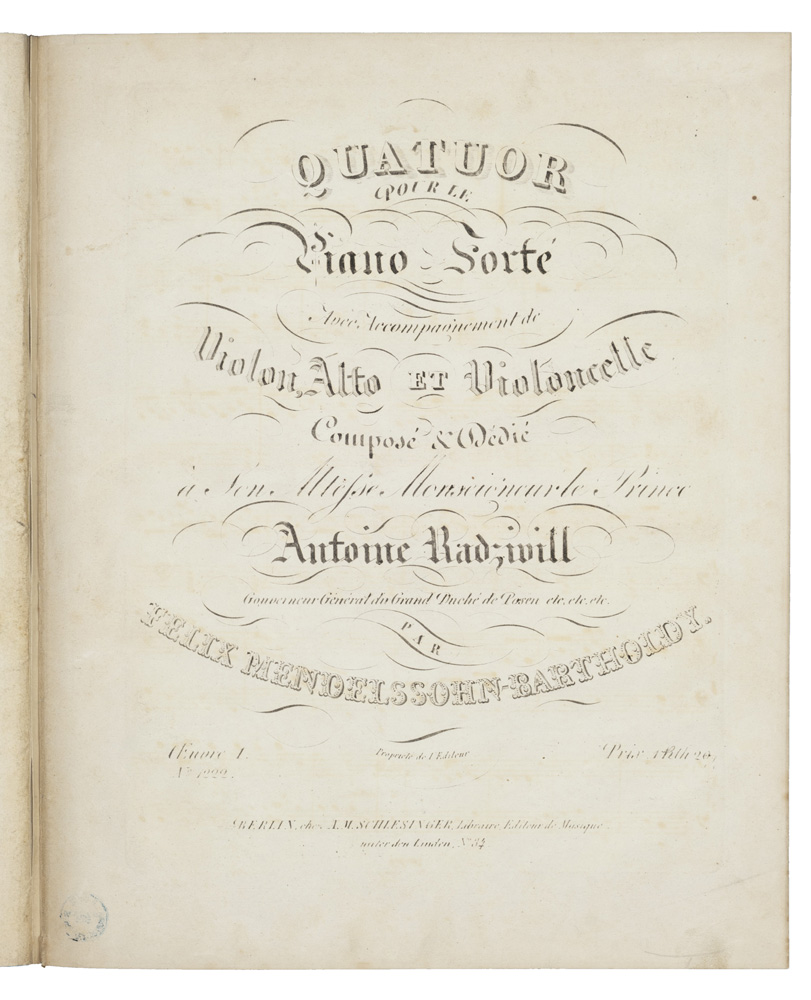 QUATUOR
POUR LE
Piano-Forté
Avec Accompagnement de
Violon, Alto ET Violoncelle
Composé & Dédié
à Son Altesse Monseigneur le Prince
Antoine Radziwill
Gouverneur Général du Grand Duché de Posen etc. etc. etc.
PAR
FELIX MENDELSSOHN-BARTHOLDY.
Œuvre 1.
Propriété de l'Editeur
Prix 1 Rth 20,
No 1222.
BERLIN, chez A.M. SCHLESINGER, Libraire Editeur de Musique
unter den Linden, No 34